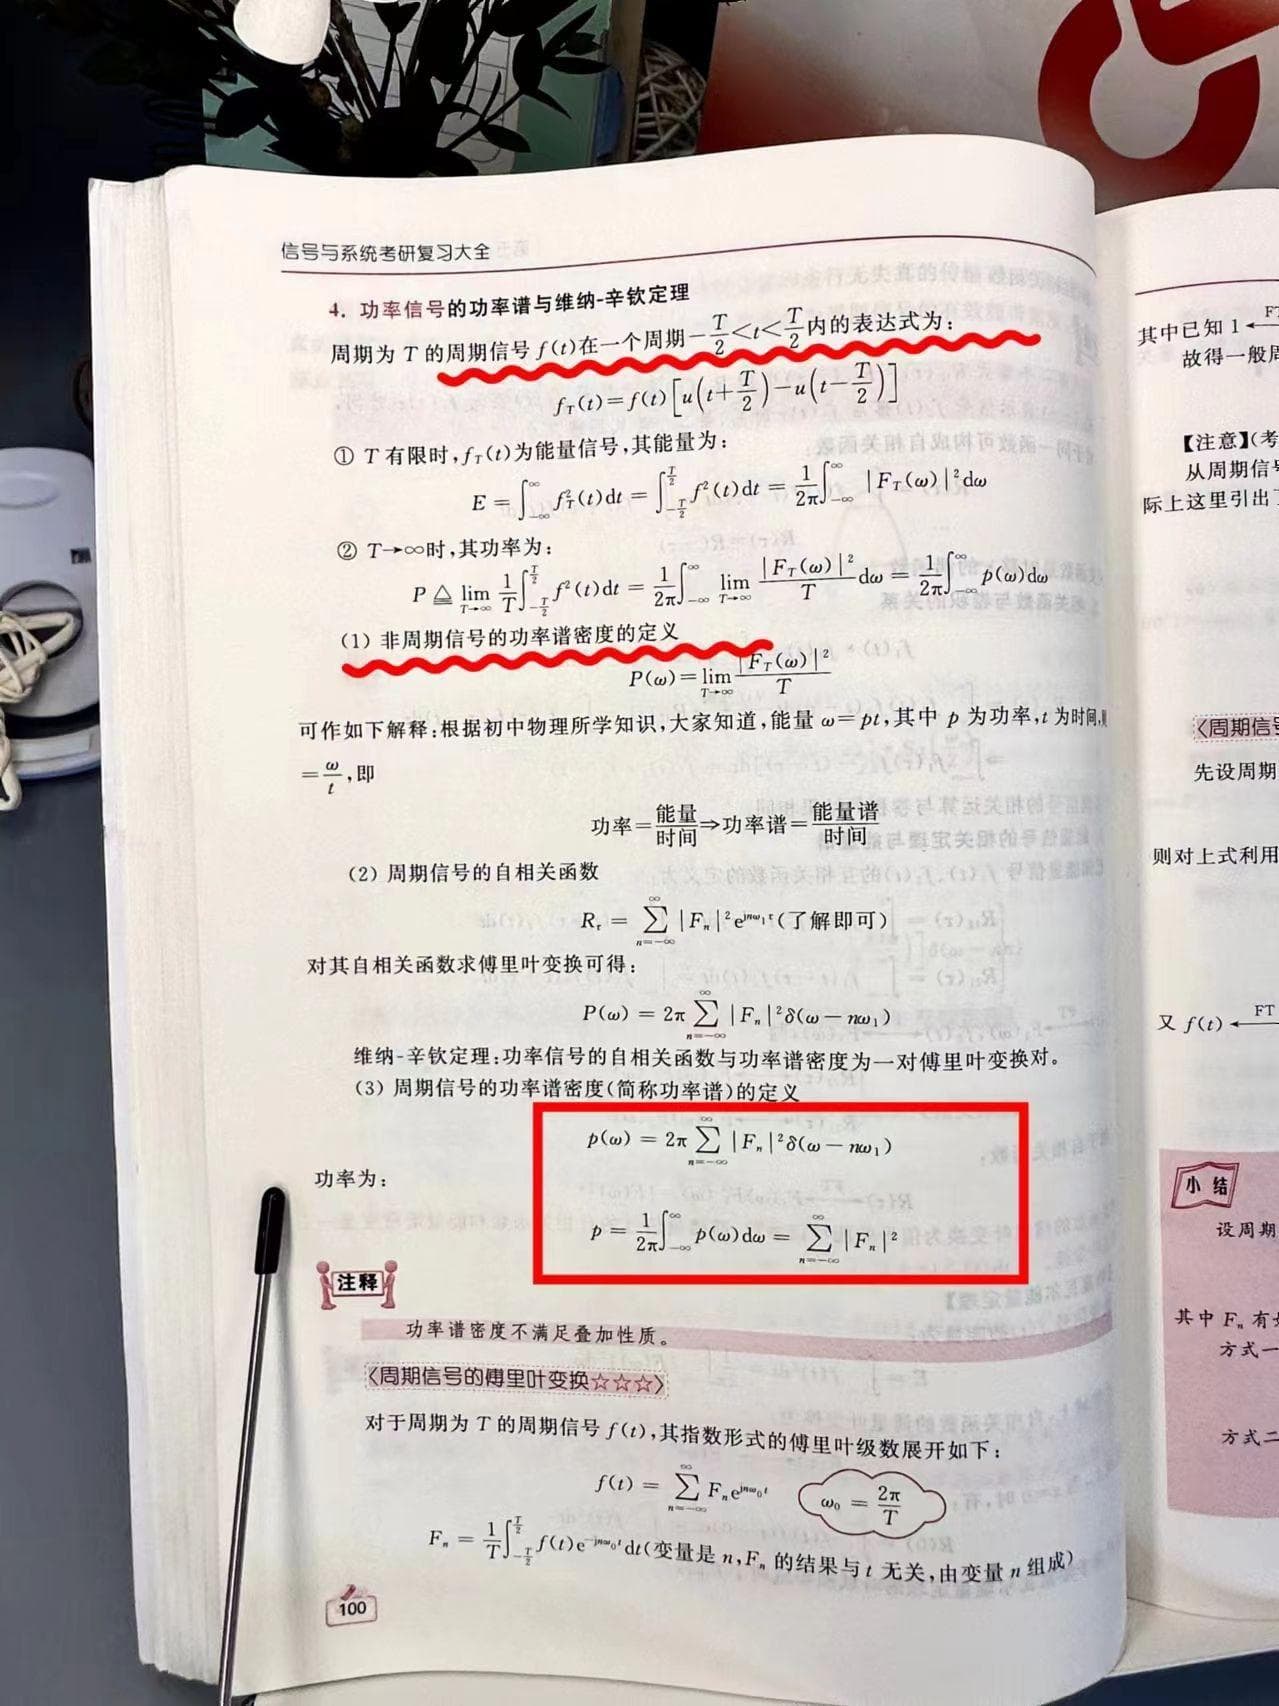 信号与系统考研复习大全
4. 功率信号的功率谱与维纳-辛钦定理
周期为 T 的周期信号 f(t)在一个周期 -T/2<t<T/2 内的表达式为:
f_T(t)=f(t)[u(t+T/2)-u(t-T/2)]
① T 有限时,f_T(t)为能量信号,其能量为:
E = ∫_{-∞}^{∞} f_T^2(t)dt = ∫_{-T/2}^{T/2} f^2(t)dt = 1/2π ∫_{-∞}^{∞} |F_T(ω)|^2 dω
② T→∞时,其功率为:
P ≜ lim_{T→∞} 1/T ∫_{-T/2}^{T/2} f^2(t)dt = 1/2π ∫_{-∞}^{∞} lim_{T→∞} |F_T(ω)|^2/T dω = 1/2π ∫_{-∞}^{∞} p(ω)dω
(1) 非周期信号的功率谱密度的定义
P(ω)=lim_{T→∞} |F_T(ω)|^2/T
可作如下解释:根据初中物理所学知识,大家知道,能量 ω=pt,其中 p 为功率,t 为时间,
=ω/t,即
功率=能量/时间⇒功率谱=能量谱/时间
(2) 周期信号的自相关函数
R_τ = ∑_{n=-∞}^{∞} |F_n|^2 e^{jnω_1τ}(了解即可)
对其自相关函数求傅里叶变换可得:
P(ω) = 2π ∑_{n=-∞}^{∞} |F_n|^2 δ(ω-nω_1)
维纳-辛钦定理:功率信号的自相关函数与功率谱密度为一对傅里叶变换对。
(3) 周期信号的功率谱密度(简称功率谱)的定义
p(ω) = 2π ∑_{n=-∞}^{∞} |F_n|^2 δ(ω-nω_1)
功率为:
p = 1/2π ∫_{-∞}^{∞} p(ω)dω = ∑_{n=-∞}^{∞} |F_n|^2
注释
功率谱密度不满足叠加性质。
〈周期信号的傅里叶变换☆☆☆〉
对于周期为 T 的周期信号 f(t),其指数形式的傅里叶级数展开如下:
f(t) = ∑_{n=-∞}^{∞} F_n e^{jnω_0t}
ω_0 = 2π/T
F_n = 1/T ∫_{-T/2}^{T/2} f(t)e^{-jnω_0t}dt(变量是 n,F_n 的结果与 t 无关,由变量 n 组成)
100
其中已知 1
故得一般周
【注意】(考
从周期信号
际上这里引出
〈周期信号
先设周期
则对上式利用
又 f(t) ← FT
小结
设周期
其中 F_n 有
方式一
方式二